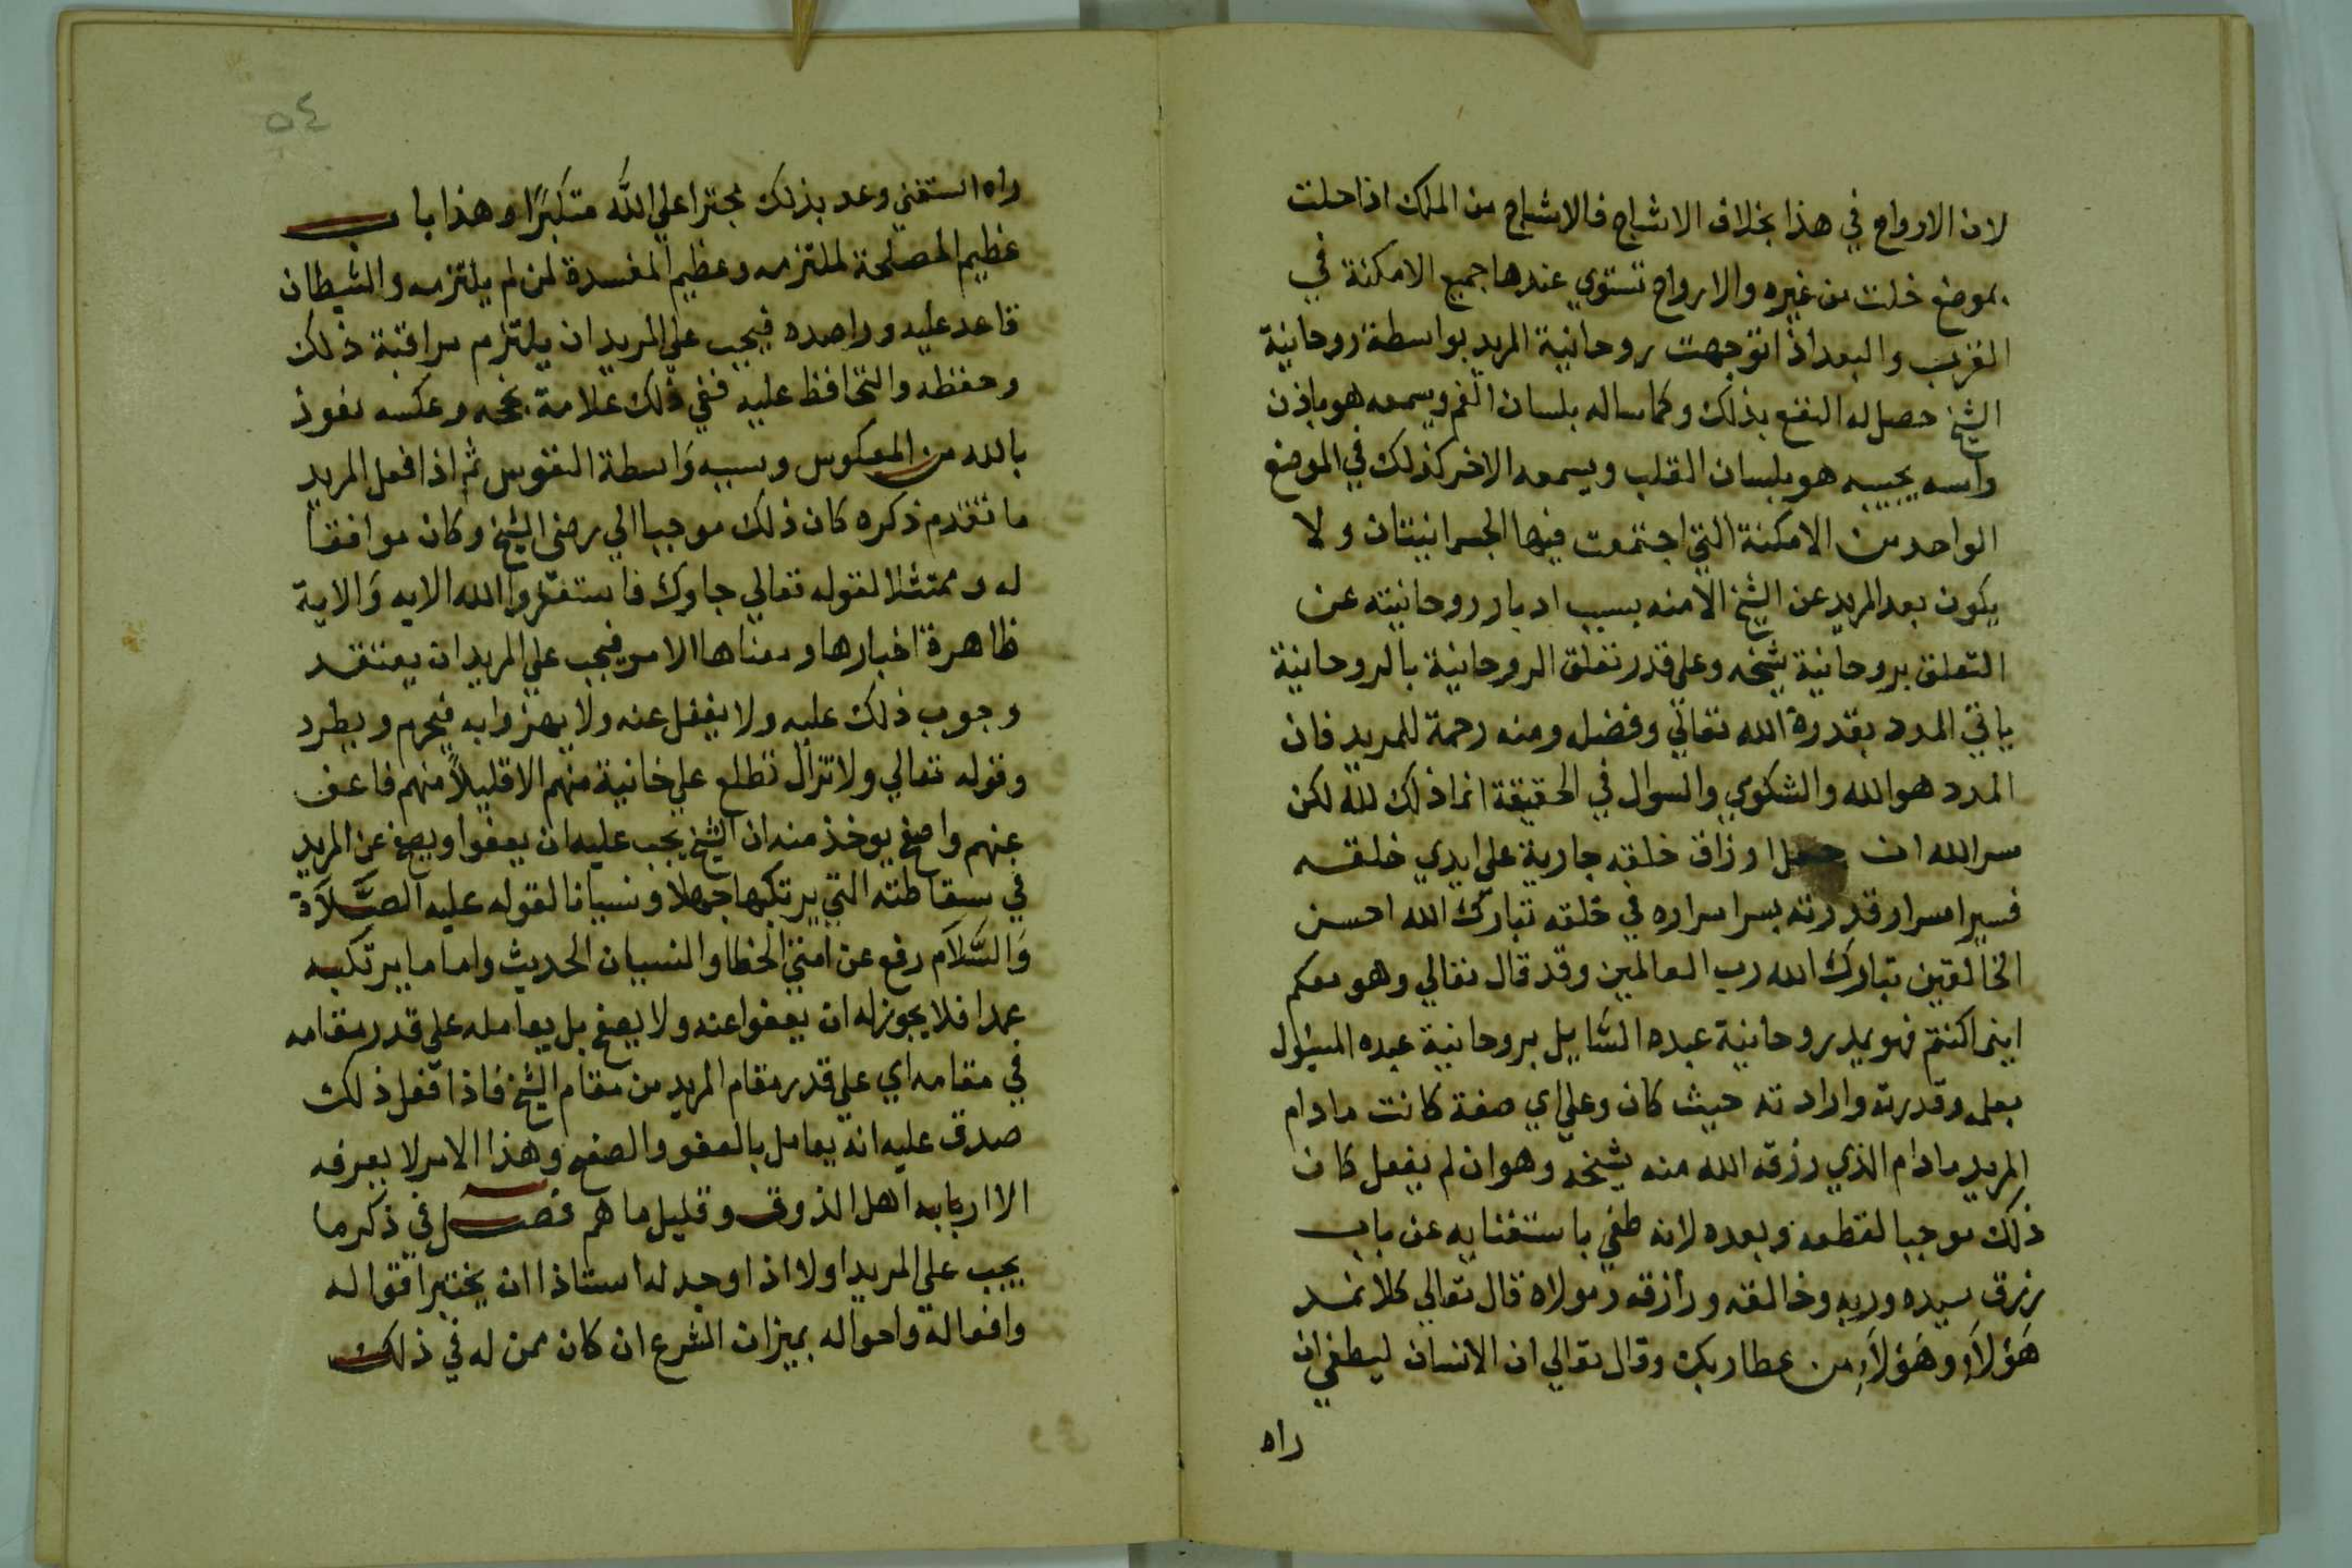 لان الارواح في هذا بخلاف الاشباح فالاشباح من الملك اذا حلت
بموضع خلت من غيره والارواح تستوي عندها جميع الامكنة في
القرب والبعد اذا توجهت روحانية المريد بواسطة روحانية
الشيخ حصل له النفع بذلك وكما ساله بلسان الفم ويسمعه هو باذن
راسه يجيبه هو بلسان القلب ويسمعه الاخر كذلك في الموضع
الواحد من الامكنة التي اجتمعت فيها الجسمانيتان ولا
يكون بعد المريد عن الشيخ الا منه بسبب ادبار روحانيته عن
التعلق بروحانية شيخه وعلى قدر تعلق الروحانية بالروحانية
ياتي المدد بقدرة الله تعالي وفضله ومنه رحمة للمريد فان
المدد هو الله والشكوي والسوال في الحقيقة انما ذلك لله لكن
سر الله ان جعل ارزاق خلقه جارية علي ايدي خلقه
فسير اسرار قدرته بسر اسراره في خلقه تبارك الله احسن
الخالقين تبارك الله رب العالمين وقد قال تعالي وهو معكم
اينما كنتم فهو يمد روحانية عبده السَّايل بروحانية عبده المسئول
بعلمه وقدرته وارادته حيث كان وعلي اي صفة كانت مادام
المريد مادام الذي رزقه الله منه شيخه وهو ان لم يفعل كان
ذلك موجبا لقطعه وبعده لانه طغي باستغنايه عن باب
رزق سيده وربه وخالقه ورازقه ومولاه قال تعالي كلا نمد
هَؤلَاءِ وهَؤلَاءِ من عطا ربك وقال تعالي ان الانسان ليطغي ان
راه
٥٤
راه استغني وعد بذلك مجترا علي الله متكبرًا وهذا باب
عظيم المصلحة لملتزمه وعظيم المفسدة لمن لم يلتزمه والشيطان
قاعد عليه وراصده فيجب علي المريد ان يلتزم مراقبة ذلك
وحفظه والتحافظ عليه ففي ذلك علامة نجحه وعكسه نعوذ
بالله من المعكوس وسببه وَاسطة النفوس ثم اذا فعل المريد
ما تقدم ذكره كان ذلك موجبا الي رضى الشيخ وكان موافقا
له وممتثلا لقوله تعالي جاوك فاستغفروا الله الايه وَالاية
ظاهرة اخبارها ومعناها الامر فيجب علي المريد ان يعتقد
وجوب ذلك عليه ولا يغفل عنه ولا يهزوا به فيحرم ويطرد
وقوله تعالي ولا تزال تطلع علي خانية منهم الا قليلاً منهم فاعف
عنهم واصفح يوخذ منه ان الشيخ يجب عليه ان يعفوا ويصفح عن المريد
في سقاطته التي يرتكبها جهلا ونسيانا لقوله عليه الصَّلَاة
وَالسَّلَام رفع عن امتي الخطا والنسيان الحديث واما ما يرتكبه
عمدا فلا يجوز له ان يعفوا عنه ولا يصفح بل يعامله علي قدر مقامه
في مقامه اي علي قدر مقام المريد من مقام الشيخ فاذا فعل ذلك
صدق عليه انه يعامل بالعفو والصفح وهذا الامر لا يعرفه
الا اربابه اهل الذوق وقليل ما هم فصل في ذكر ما
يجب علي المريد اولا اذا وجد له استاذا ان يختبر اقواله
وافعاله واحواله بميزان الشرع ان كان ممن له في ذلك